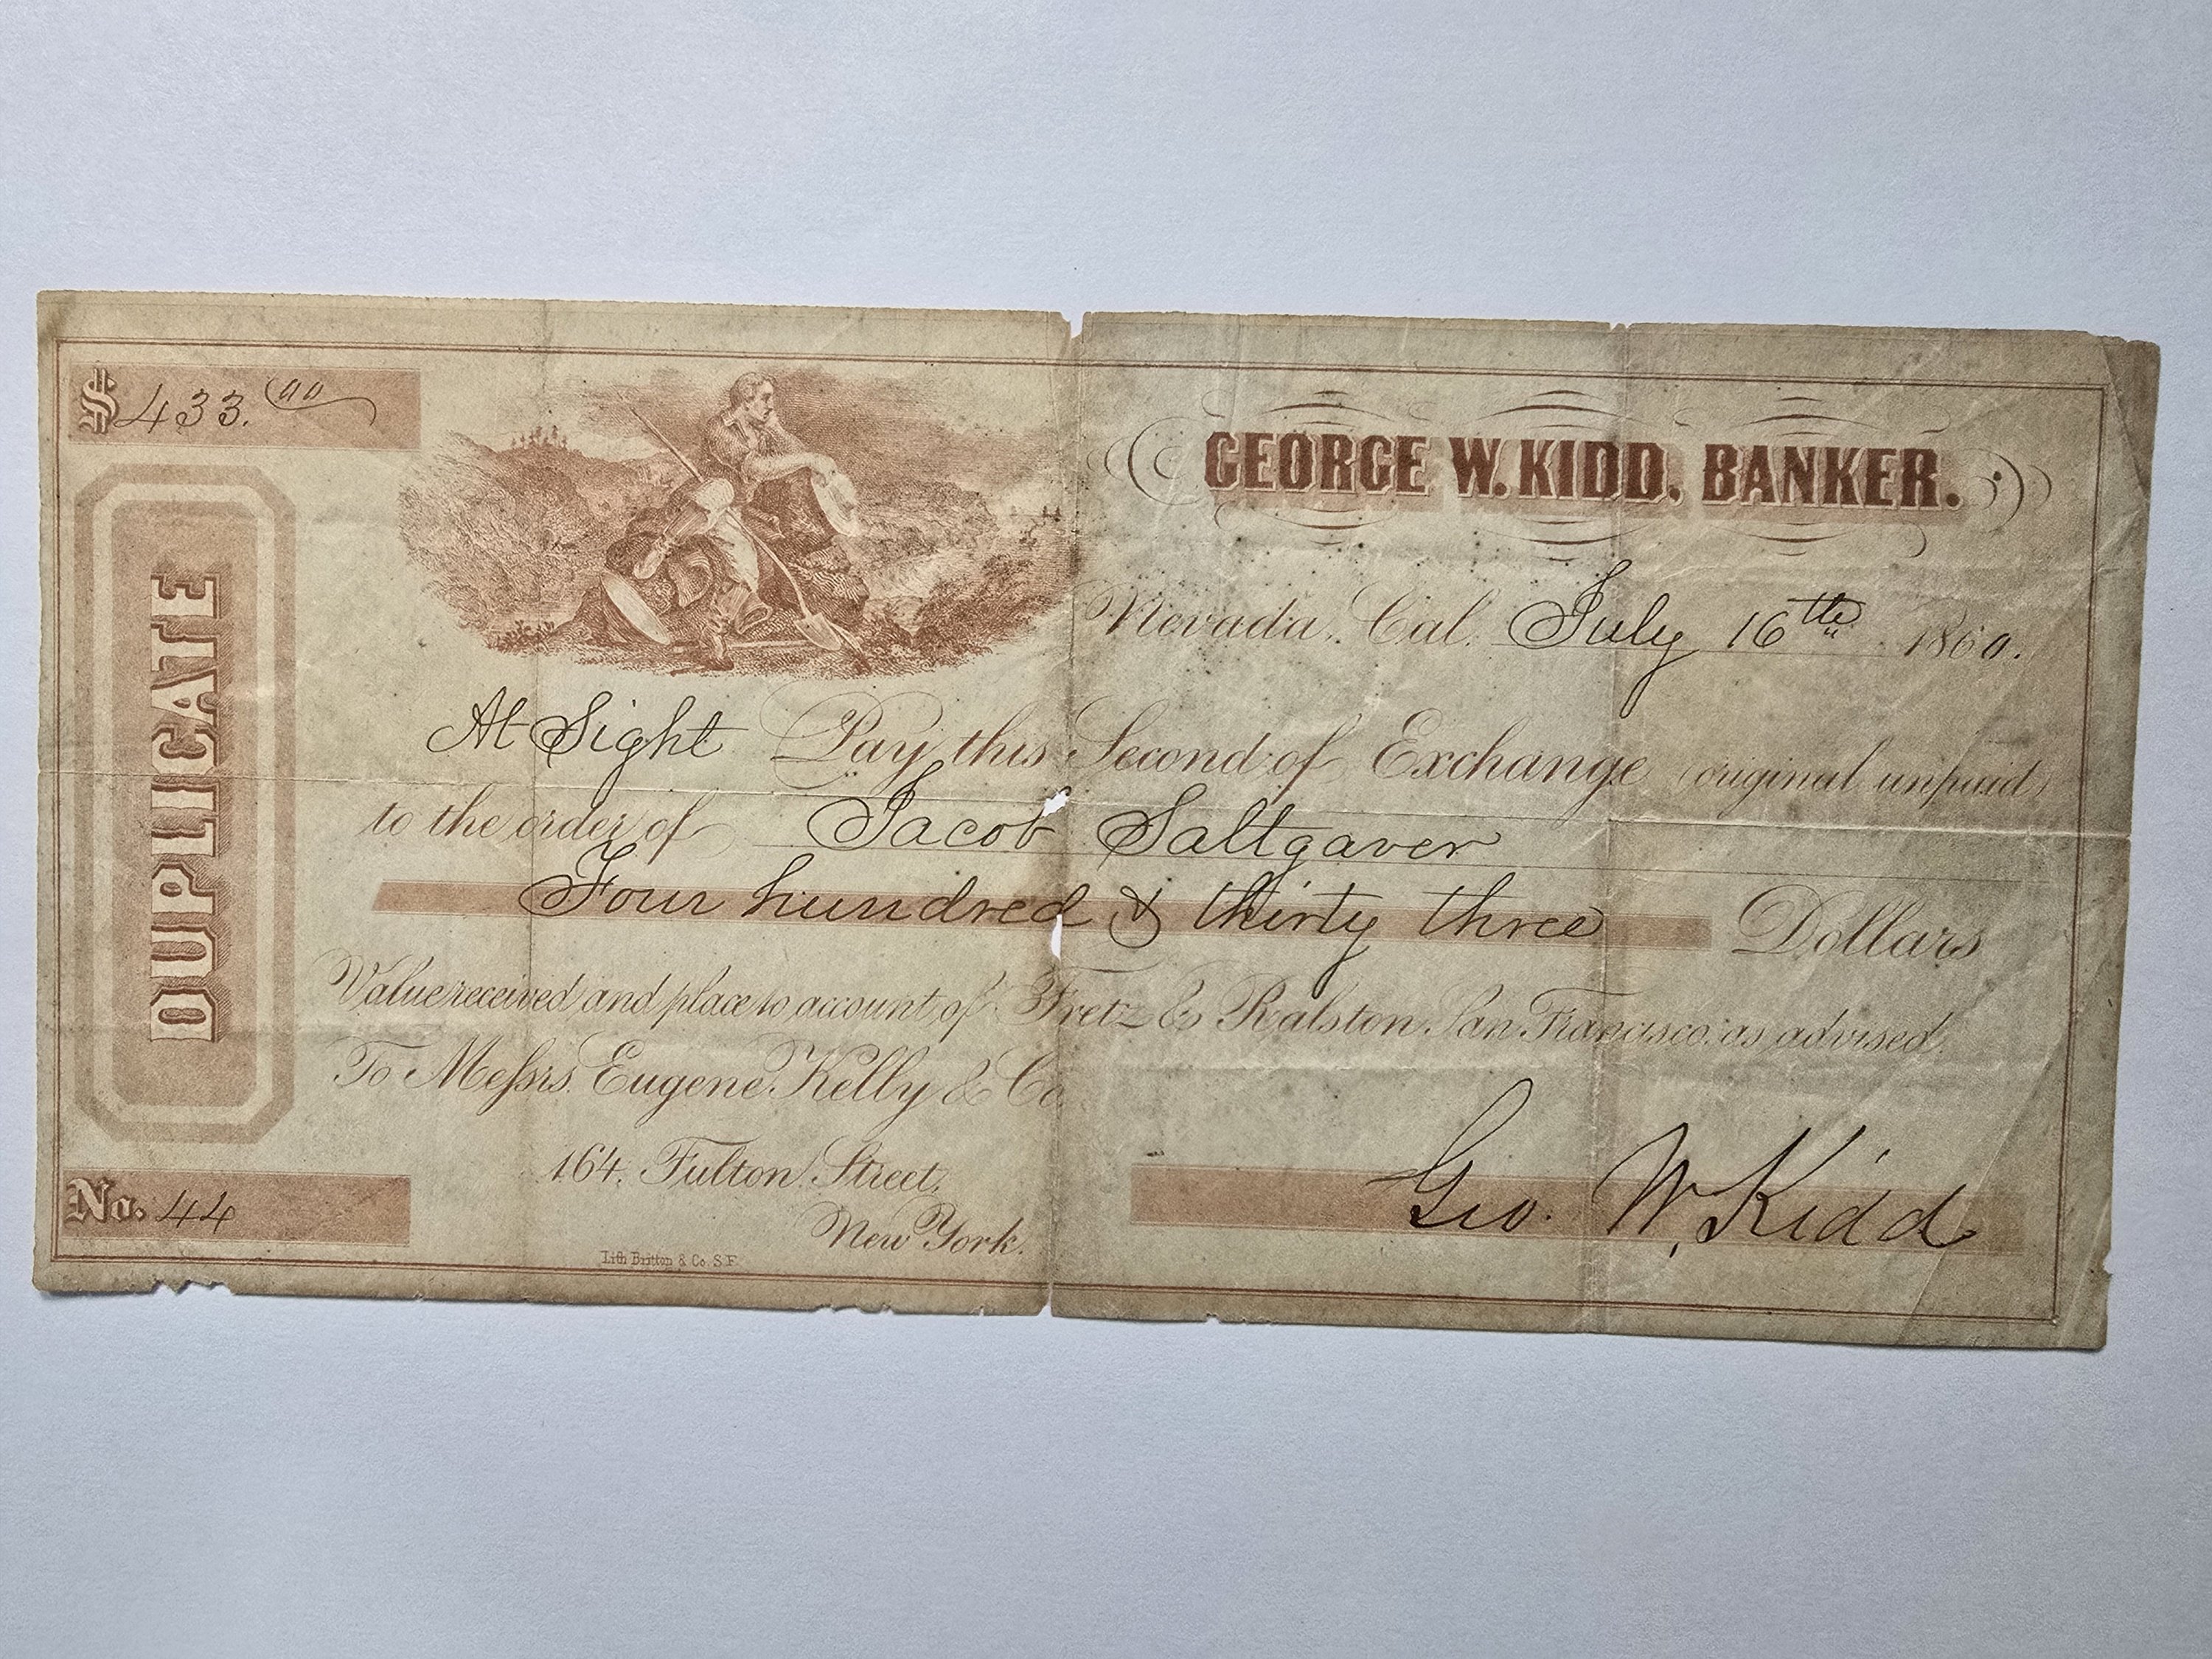 $ 433.00
GEORGE W. KIDD, BANKER.
DUPLICATE
Nevada, Cal. July 16th 1860.
At Sight Pay this Second of Exchange (original unpaid)
to the order of Jacob Saltgaver
Four hundred & thirty three Dollars
Value received and place to account of Fretz & Ralston San Francisco as advised.
To Messrs. Eugene Kelly & Co.
164. Fulton Street,
New York.
Geo. W. Kidd
No. 44
Lith Britton & Co. S.F.